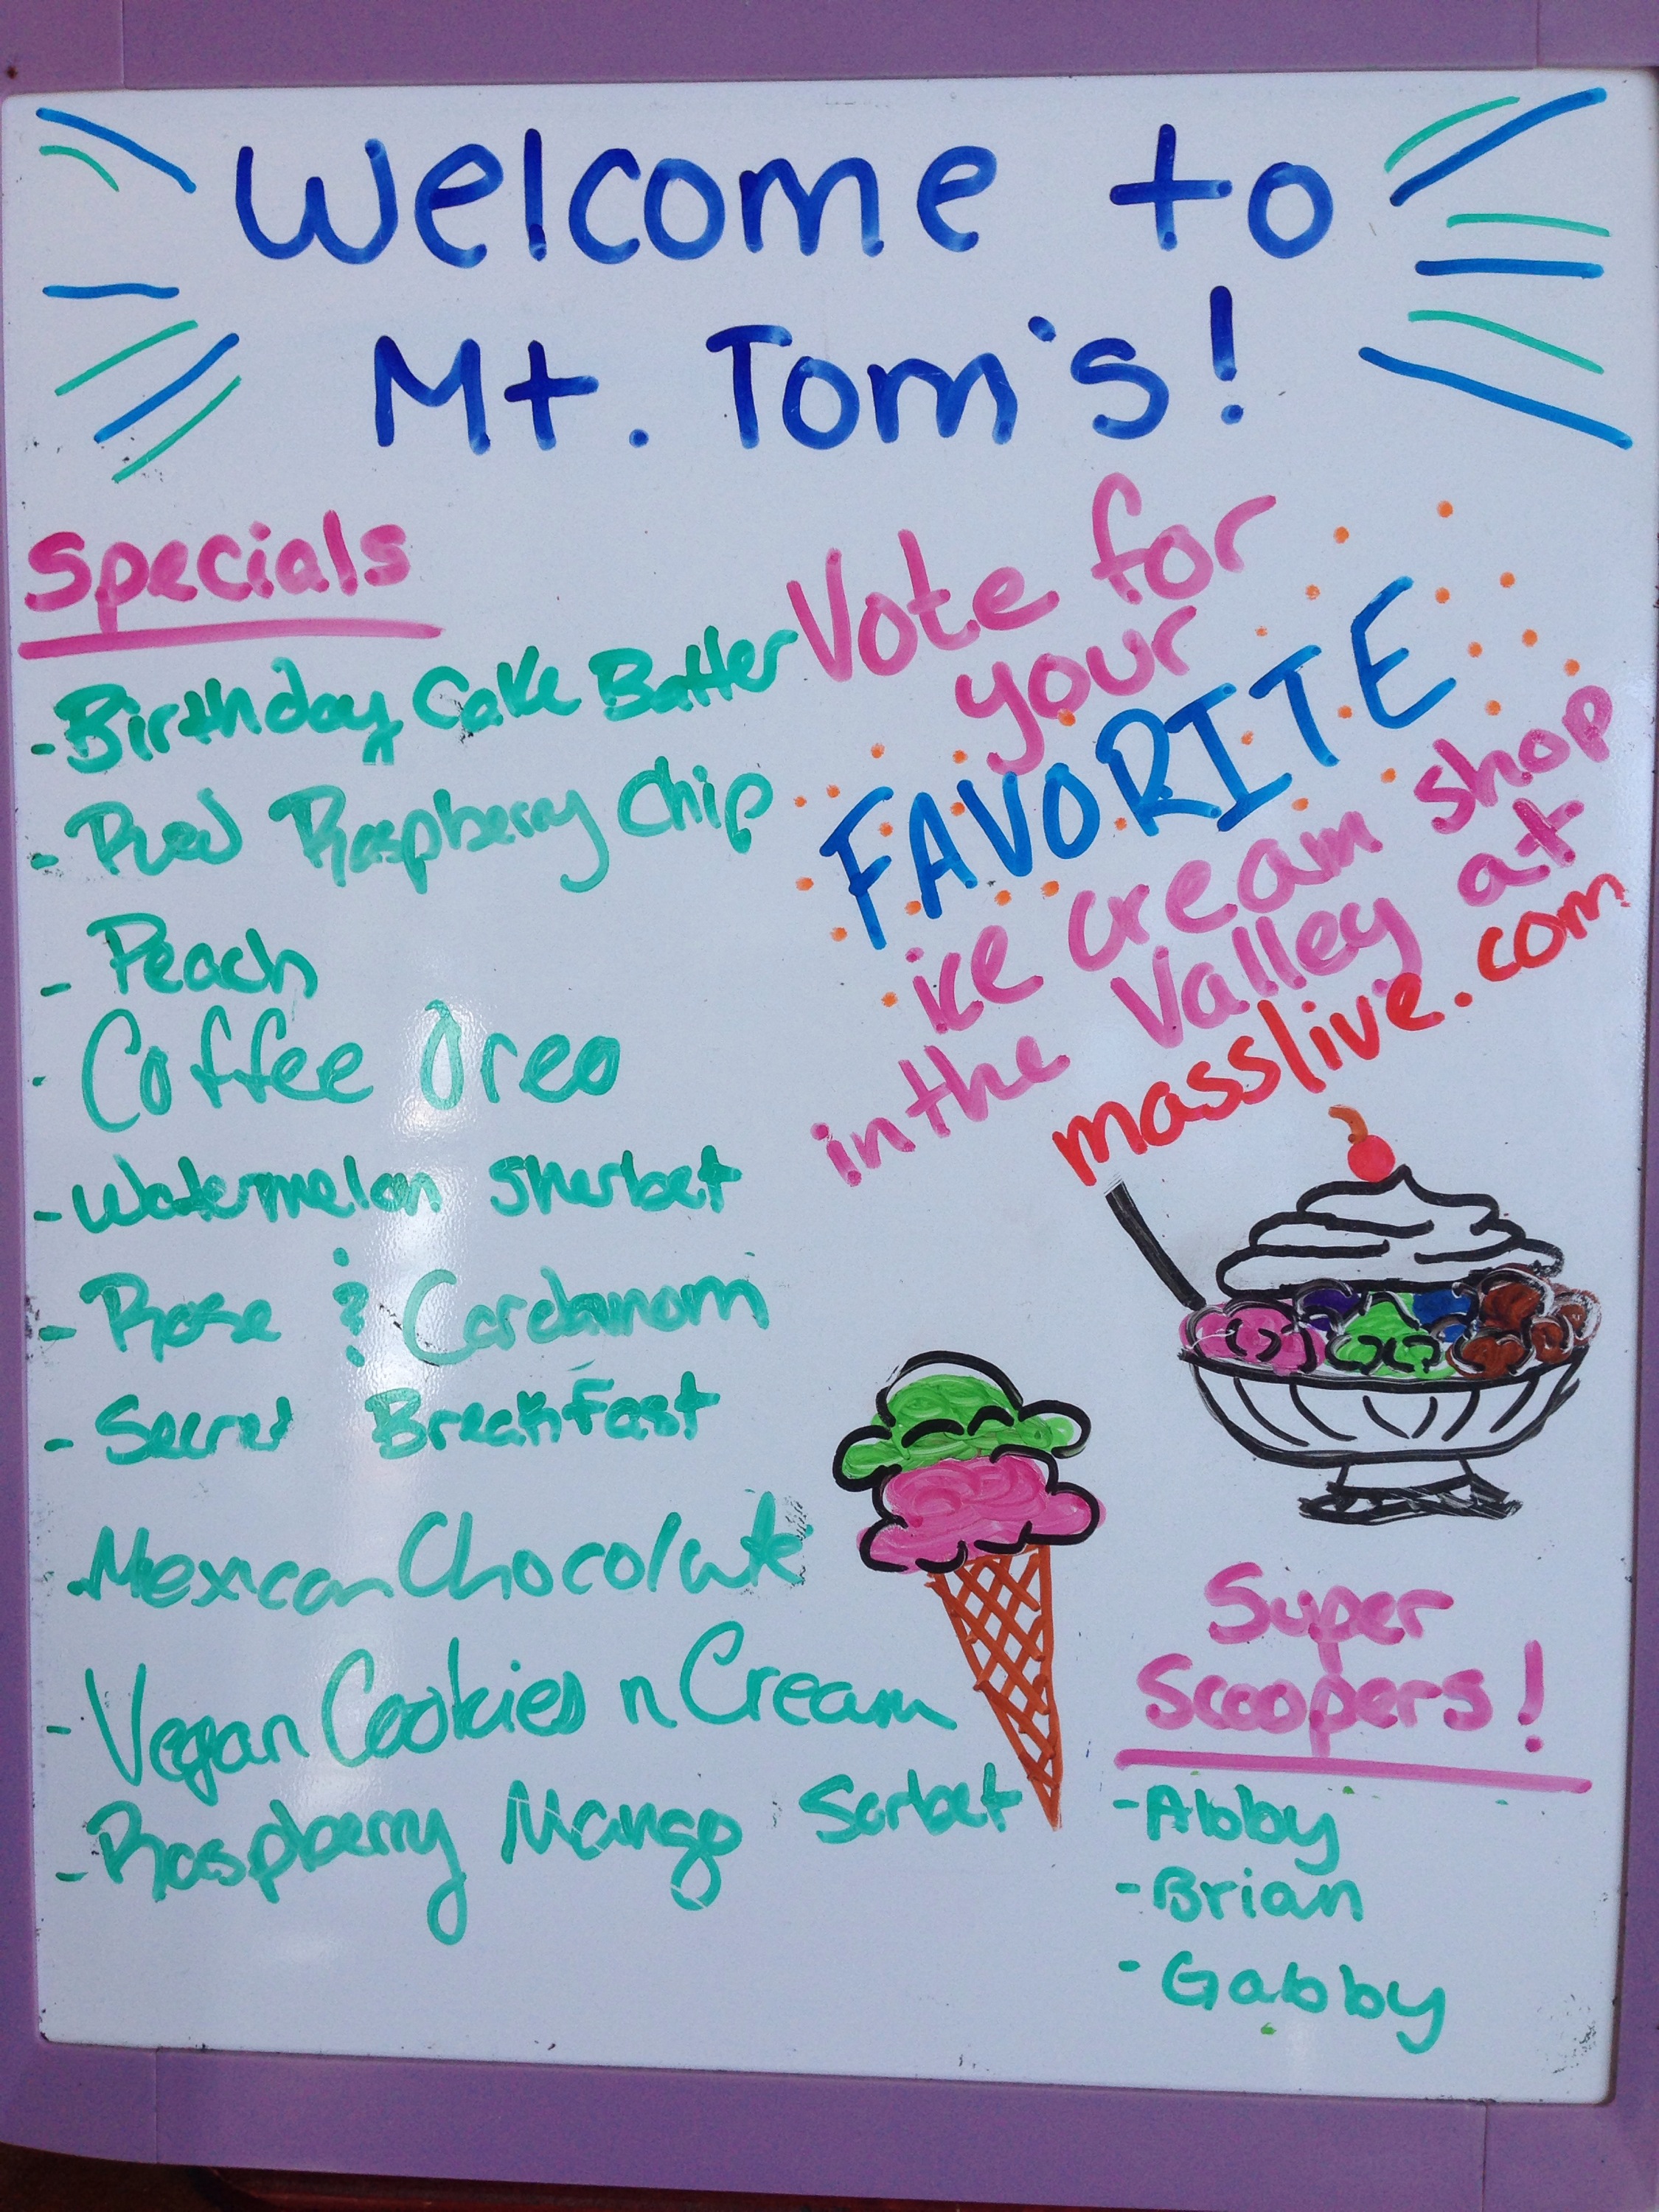 Welcome to
Mt. Tom's!
Specials
- Birthday Cake Batter
- Red Raspberry Chip
- Peach
- Coffee Oreo
- Watermelon Sherbet
- Rose & Cardamom
- Secret Breakfast
- Mexican Chocolate
- Vegan Cookies n Cream
- Raspberry Mango Sorbet
Vote for
your
FAVORITE
ice cream shop
in the Valley at
masslive.com
Super
Scoopers!
- Abby
- Brian
- Gabby